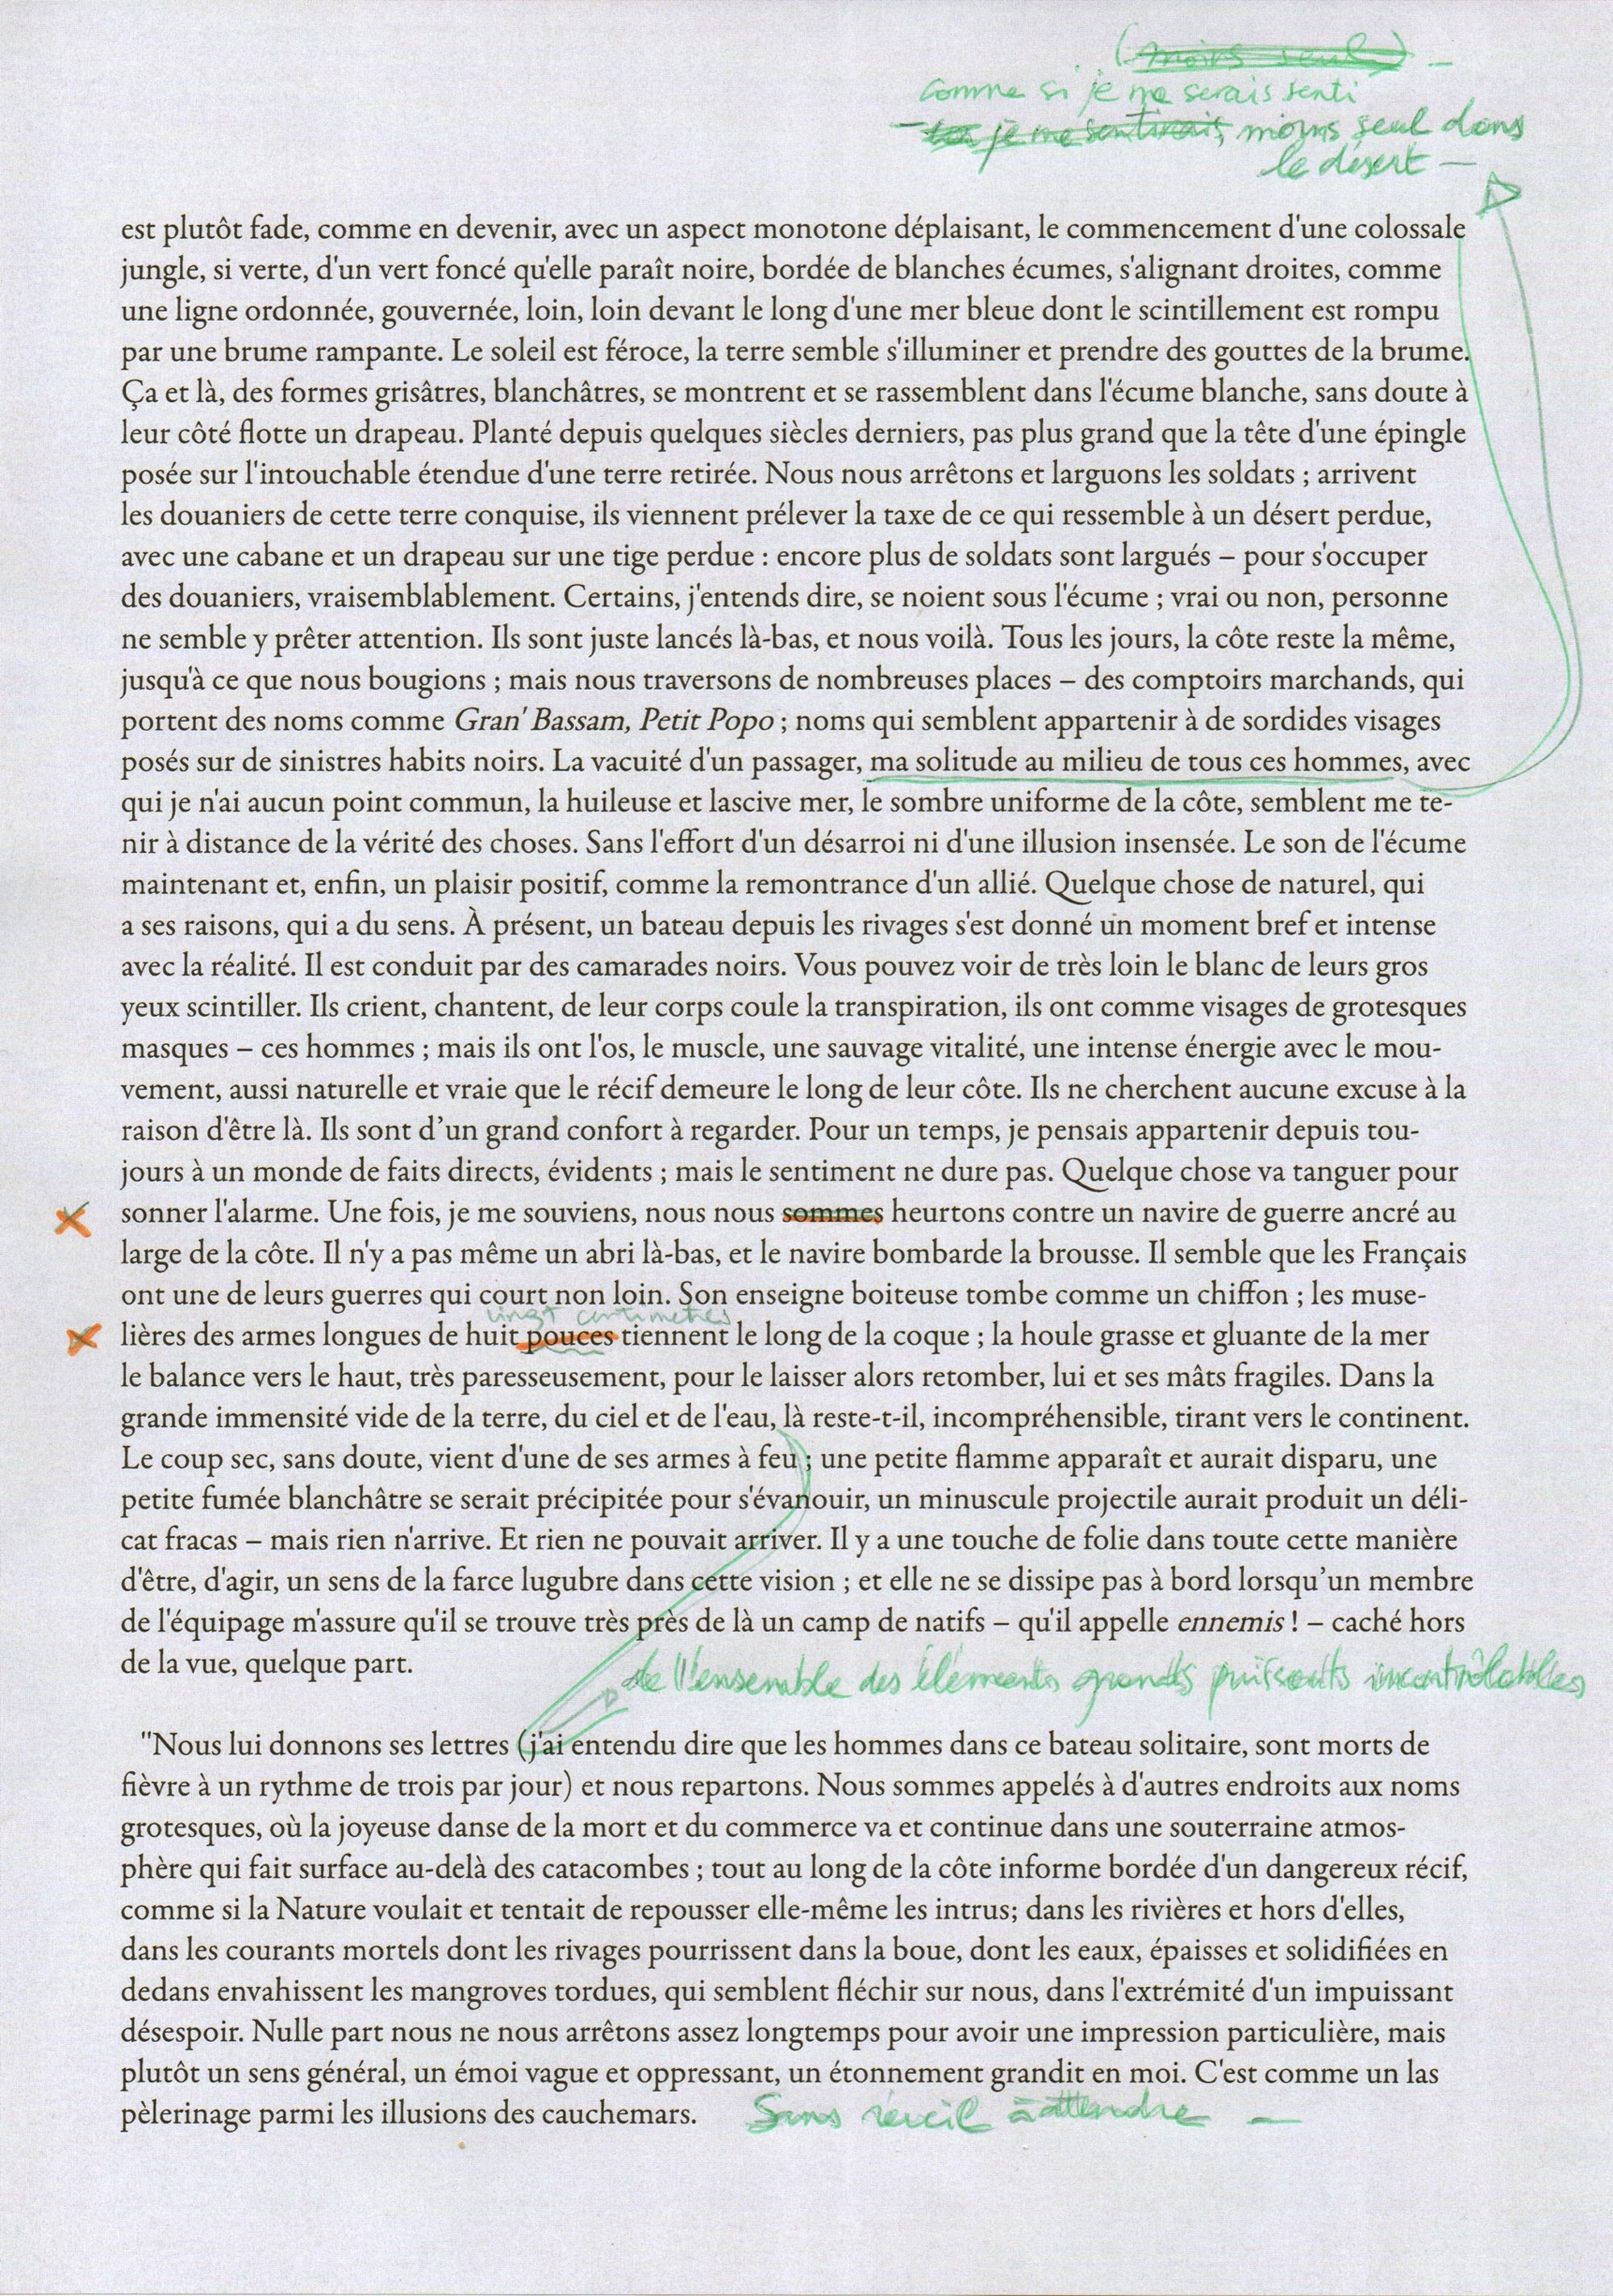 (moins seul) –
comme si je me serais senti
– je me sentirais, moins seul dans
le désert –
est plutôt fade, comme en devenir, avec un aspect monotone déplaisant, le commencement d'une colossale
jungle, si verte, d'un vert foncé qu'elle paraît noire, bordée de blanches écumes, s'alignant droites, comme
une ligne ordonnée, gouvernée, loin, loin devant le long d'une mer bleue dont le scintillement est rompu
par une brume rampante. Le soleil est féroce, la terre semble s'illuminer et prendre des gouttes de la brume.
Ça et là, des formes grisâtres, blanchâtres, se montrent et se rassemblent dans l'écume blanche, sans doute à
leur côté flotte un drapeau. Planté depuis quelques siècles derniers, pas plus grand que la tête d'une épingle
posée sur l'intouchable étendue d'une terre retirée. Nous nous arrêtons et larguons les soldats ; arrivent
les douaniers de cette terre conquise, ils viennent prélever la taxe de ce qui ressemble à un désert perdue,
avec une cabane et un drapeau sur une tige perdue : encore plus de soldats sont largués – pour s'occuper
des douaniers, vraisemblablement. Certains, j'entends dire, se noient sous l'écume ; vrai ou non, personne
ne semble y prêter attention. Ils sont juste lancés là-bas, et nous voilà. Tous les jours, la côte reste la même,
jusqu'à ce que nous bougions ; mais nous traversons de nombreuses places – des comptoirs marchands, qui
portent des noms comme Gran' Bassam, Petit Popo ; noms qui semblent appartenir à de sordides visages
posés sur de sinistres habits noirs. La vacuité d'un passager, ma solitude au milieu de tous ces hommes, avec
qui je n'ai aucun point commun, la huileuse et lascive mer, le sombre uniforme de la côte, semblent me te-
nir à distance de la vérité des choses. Sans l'effort d'un désarroi ni d'une illusion insensée. Le son de l'écume
maintenant et, enfin, un plaisir positif, comme la remontrance d'un allié. Quelque chose de naturel, qui
a ses raisons, qui a du sens. À présent, un bateau depuis les rivages s'est donné un moment bref et intense
avec la réalité. Il est conduit par des camarades noirs. Vous pouvez voir de très loin le blanc de leurs gros
yeux scintiller. Ils crient, chantent, de leur corps coule la transpiration, ils ont comme visages de grotesques
masques – ces hommes ; mais ils ont l'os, le muscle, une sauvage vitalité, une intense énergie avec le mou-
vement, aussi naturelle et vraie que le récif demeure le long de leur côte. Ils ne cherchent aucune excuse à la
raison d'être là. Ils sont d’un grand confort à regarder. Pour un temps, je pensais appartenir depuis tou-
jours à un monde de faits directs, évidents ; mais le sentiment ne dure pas. Quelque chose va tanguer pour
sonner l'alarme. Une fois, je me souviens, nous nous sommes heurtons contre un navire de guerre ancré au
large de la côte. Il n'y a pas même un abri là-bas, et le navire bombarde la brousse. Il semble que les Français
ont une de leurs guerres qui court non loin. Son enseigne boiteuse tombe comme un chiffon ; les muse-
vingt centimètres
lières des armes longues de huit pouces tiennent le long de la coque ; la houle grasse et gluante de la mer
le balance vers le haut, très paresseusement, pour le laisser alors retomber, lui et ses mâts fragiles. Dans la
grande immensité vide de la terre, du ciel et de l'eau, là reste-t-il, incompréhensible, tirant vers le continent.
Le coup sec, sans doute, vient d'une de ses armes à feu ; une petite flamme apparaît et aurait disparu, une
petite fumée blanchâtre se serait précipitée pour s'évanouir, un minuscule projectile aurait produit un déli-
cat fracas – mais rien n'arrive. Et rien ne pouvait arriver. Il y a une touche de folie dans toute cette manière
d'être, d'agir, un sens de la farce lugubre dans cette vision ; et elle ne se dissipe pas à bord lorsqu’un membre
de l'équipage m'assure qu'il se trouve très près de là un camp de natifs – qu'il appelle ennemis ! – caché hors
de la vue, quelque part.
de l'ensemble des éléments grands puissants incontrôlables
"Nous lui donnons ses lettres (j'ai entendu dire que les hommes dans ce bateau solitaire, sont morts de
fièvre à un rythme de trois par jour) et nous repartons. Nous sommes appelés à d'autres endroits aux noms
grotesques, où la joyeuse danse de la mort et du commerce va et continue dans une souterraine atmos-
phère qui fait surface au-delà des catacombes ; tout au long de la côte informe bordée d'un dangereux récif,
comme si la Nature voulait et tentait de repousser elle-même les intrus; dans les rivières et hors d'elles,
dans les courants mortels dont les rivages pourrissent dans la boue, dont les eaux, épaisses et solidifiées en
dedans envahissent les mangroves tordues, qui semblent fléchir sur nous, dans l'extrémité d'un impuissant
désespoir. Nulle part nous ne nous arrêtons assez longtemps pour avoir une impression particulière, mais
plutôt un sens général, un émoi vague et oppressant, un étonnement grandit en moi. C'est comme un las
pèlerinage parmi les illusions des cauchemars. Sans réveil à attendre –